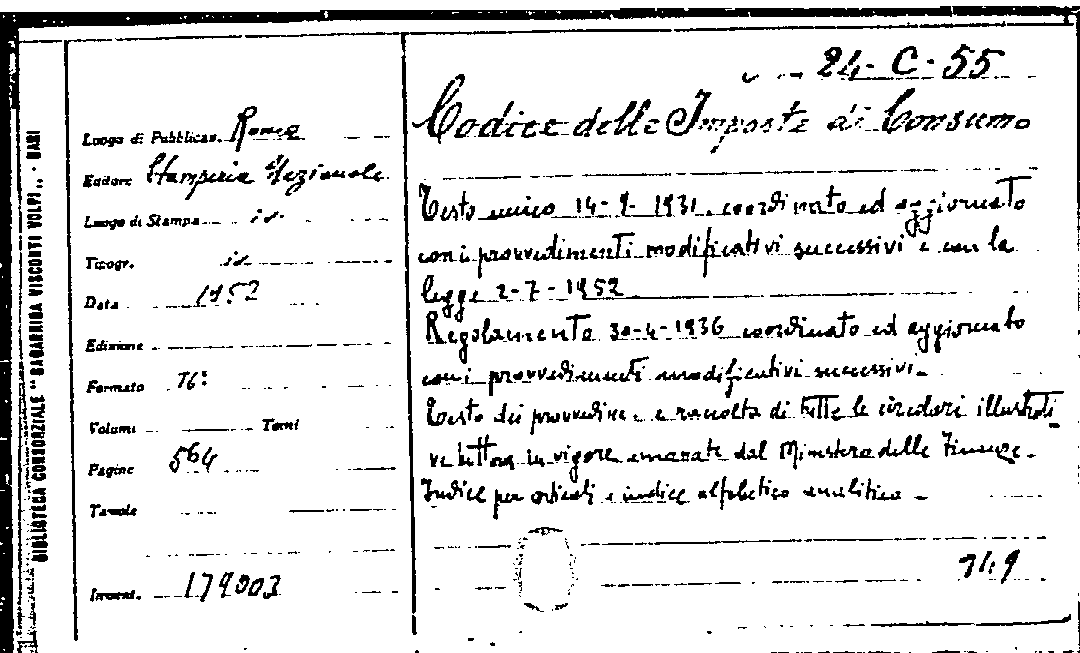 BIBLIOTECA CONSORZIALE "SAGARRIGA VISCONTI VOLPI" - BARI
24-C-55
Codice delle Imposte di Consumo
Luogo di Pubblicaz. Roma
Editore Stamperia Nazionale
Luogo di Stampa id.
Tipogr. id.
Data 1952
Edizione
Formato 16°
Volumi Tomi
Pagine 564
Tavole
Invent. 179003
Testo unico 14-9-1931, coordinato ed aggiornato
con i provvedimenti modificativi successivi e con la
legge 2-7-1952
Regolamento 30-4-1936 coordinato ed aggiornato
con i provvedimenti modificativi successivi.
Testo dei provvedim. e raccolta di tutte le circolari illustrati
ve tuttora in vigore emanate dal Ministero delle Finanze.
Indice per articoli e indice alfabetico analitico.